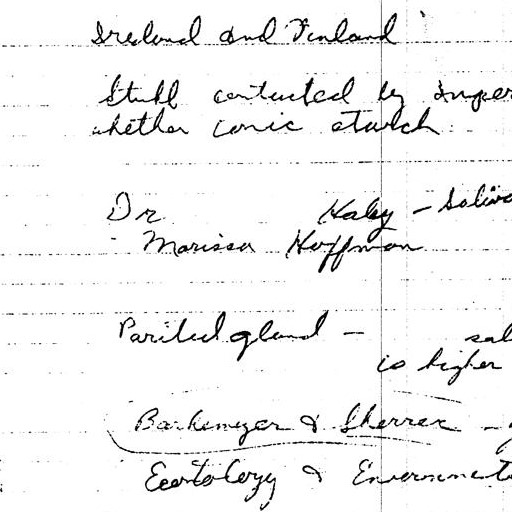 Ireland and Finland
Stuhl contacted by
whether ionic starch
Dr Haley - Saliva
Marissa Hoffman
Parited gland - sal
is higher
Barkemeyer & Sherrer -
& Environment